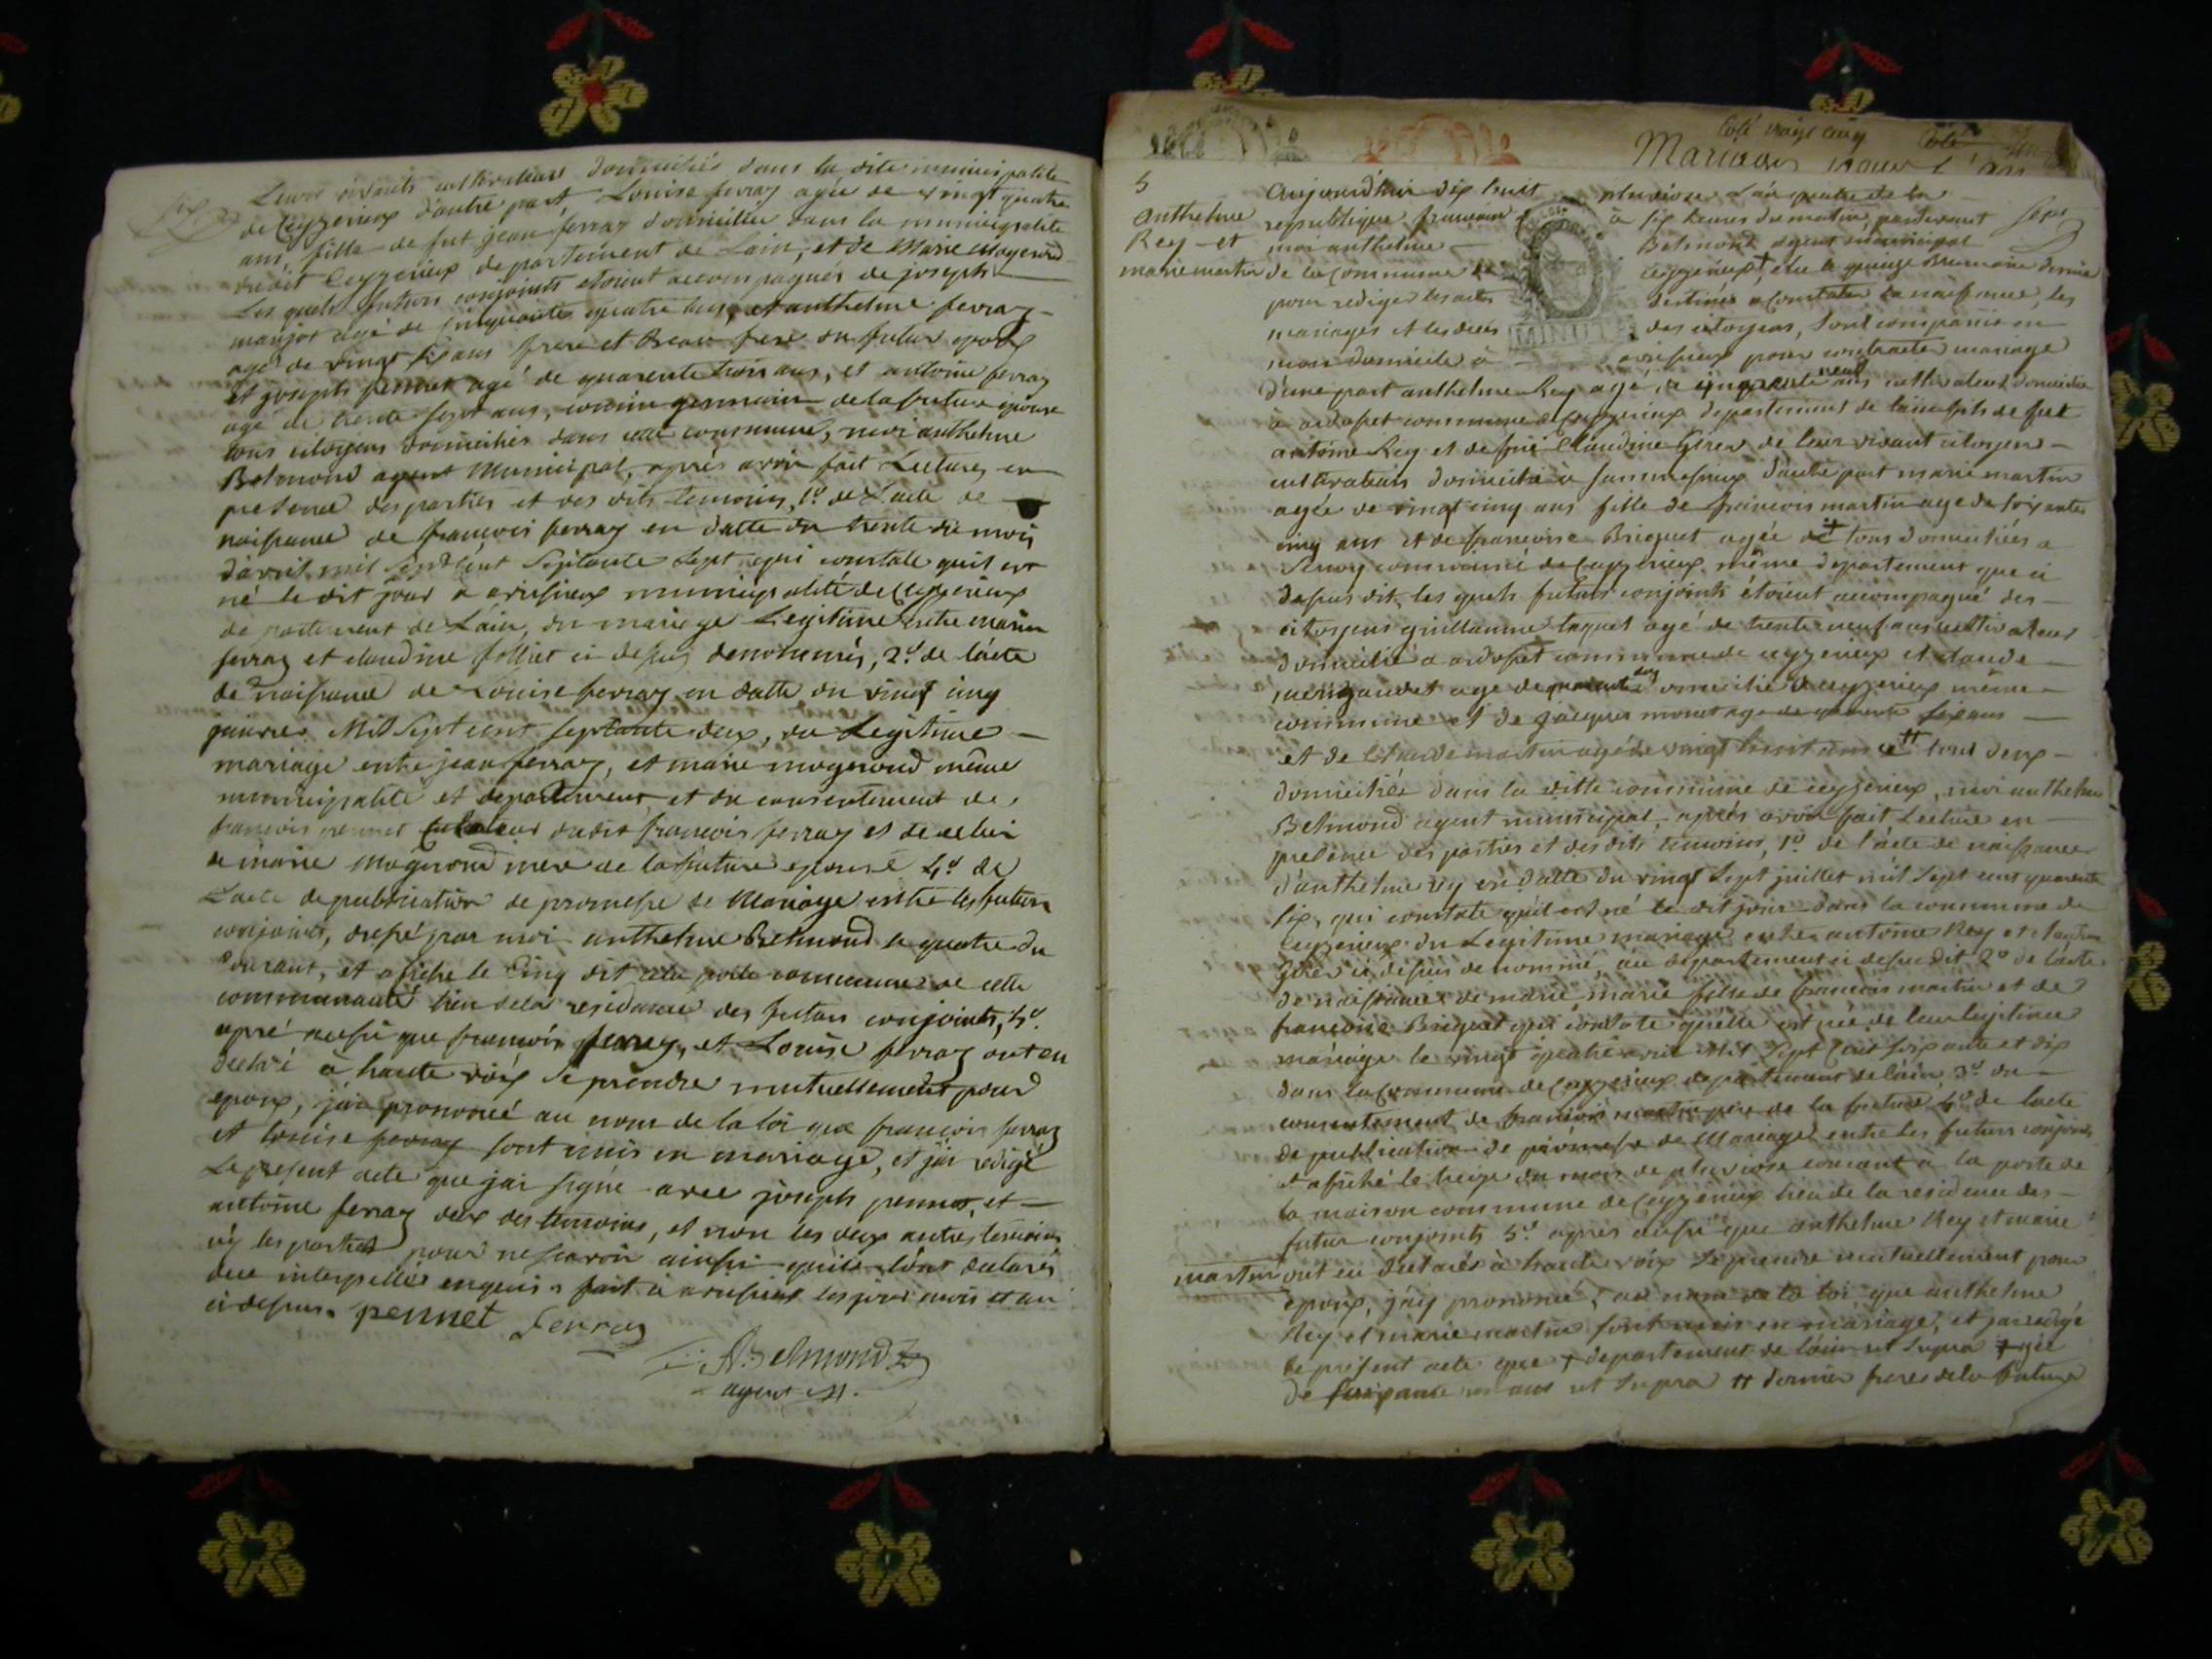 Leurs vivants cultivateurs domiciliés dans la dite municipalité
de Ceyzerieux d'autre part, Louise ferraz agée de vingt quatre
ans fille de fut jean ferraz domiciliée dans la municipalité
dudit Ceyzerieux departement de Lain, et de Marie Mogeroud
Les quels futurs conjoints etoient accompagnés de joseph
marjot agé de cinquante quatre ans, et anthelme ferraz
agé de vingt six ans frere et Beau frere du futur epoux
et joseph pennet agé de quarente trois ans, et antoine ferraz
agé de trente sept ans, cousin germain de la future epouse
tous citoyens domiciliés dans cette commune, moi anthelme
Belmond agent Municipal, après avoir fait Lecture, en
presence des parties et des dits temoins, 1.º de Lacte de
naissance de francois ferraz en datte du trente du mois
d'avril mil sept cent septante sept qui constate quil est
né le dit jour a avrissieux municipalité de Ceyzerieux
departement de Lain, du mariage Legitime entre
ferraz et claudine folliet ci dessus denommés, 2.º de lacte
de naissance de Louise ferraz en datte du vingt cinq
janvier Mil sept cent septante deux, du Legitime
mariage entre jean ferraz, et marie mogeroud même
municipalité et departement et du consentement de
francois pennet tutateur dudit francois ferraz et de celui
de marie Mogeroud mere de la future epouse 4.º de
Lacte de publication de promesse de Mariage entre les futurs
conjoints, dressé par moi anthelme Belmond le quatre du
courant, et afiché le Cinq dit a la porte commune de cette
communauté lieu de la residance des futurs conjoints, 5.º
apré aussi que francois ferraz, et Louise ferraz ont eu
declaré à haute voix se prendre mutuellement pour
epoux, j'ai prononcé au nom de la loi que francois ferraz
et Louise ferraz sont unis en mariage, et j'ai redigé
Le present acte que j'ai signé avec joseph pennet, et
antoine ferraz deux des temoins, et non les deux autres temoins
ny les parties pour ne scavoir ainsi quils l'ont declarés
due interpellés enquis. fait à avrissieux les jour mois et an
ci dessus. pennet ferraz
A. Belmond
agent M.
Coté vingt cinq
Mariages pour l'an
5
anthelme
Rey et
marie martin
Aujourd'hui dix huit pluviose L'an quatre de la
republique francaise à six heures du matin, pardevant
moi anthelme Belmond agent municipal
de la commune de ceyzerieux + elu le quinze Brumaire dernier
pour rediger les actes destinés a Constater la naissance, les
mariages et les decés des citoyens, sont comparus en
MINUTE
mon domicile à avrissieux pour contracter mariage
d'une part anthelme Rey agé de cinquante neuf ans cultivateur domicilié
à ardosset commune de Ceyzerieux departement de lain fils de fut
antoine Rey et de fuë Claudine Girer de leur vivant citoyens
cultivateurs domiciliés à d'autre part marie martin
agée de vingt cinq ans fille de francois martin agé de soixante
cinq ans et de francoise Briquet agée de ‡ tous domiciliés a
commune de Ceyzerieux même departement que ci
dessus dit, les quels futurs conjoints étoient accompagné des
citoyens guillaume laquet agé de trente neuf ans cultivateur
domicilié a ardosset commune de ceyzerieux et claude
agé de quarante domicilié a ceyzerieux même
commune et de jacques monet agé de quarente six ans
et de Claude martin agé de vingt huit ans ce ++ tous deux
domiciliés dans la ditte commune de ceyzerieux, moi anthelme
Belmond agent municipal, après avoir fait Lecture en
presence des parties et des dits temoins, 1.º de l'acte de naissance
d'anthelme rey en datte du vingt sept juillet mil sept cens quarente
six, qui constate quil est né le dit jour dans la commune de
Ceyzerieux du Legitime mariage entre antoine Rey et claudine
Girer ci dessus denommé, au departement ci dessus dit 2º de lacte
de naissance de marie marie fille de francois martin et de
francoise Briquet qui constate quelle est née de leur legitime
mariage le vingt quatre avril Mil Sept Cent soixante et dix
dans la Commune de Ceyzerieux departement de lain, 3.º du
consentement de francois martin pere de la future 4.º de lacte
de publication de promesse de Mariage entre les futurs conjoints
et afiché le treize du mois de pluviose courant à la porte de
la maison commune de Ceyzerieux lieu de la residence des
futur conjoints 5.º aprés aussi que anthelme Rey et marie
martin ont eu declarés à haute voix se prendre mutuellement pour
epoux, j'ay prononcé, au nom de la loi que anthelme
Rey et marie martin sont unis en mariage, et j'ai redigé
le present acte que + departement de lain ut supra ‡ agée
de soixante ans ut supra ++ dernier frere de la future